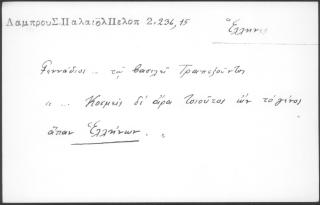 Λαμπρου Σ. Παλαιολ Πελοπ 2. 236, 15
Ἕλλην
Γεννάδιος .. τῷ βασιλεῖ Τραπεζοῦντος
".. Κοσμεῖς δ' ἄρα τοιοῦτος ὢν τὸ γένος
ἅπαν Ἑλλήνων. "